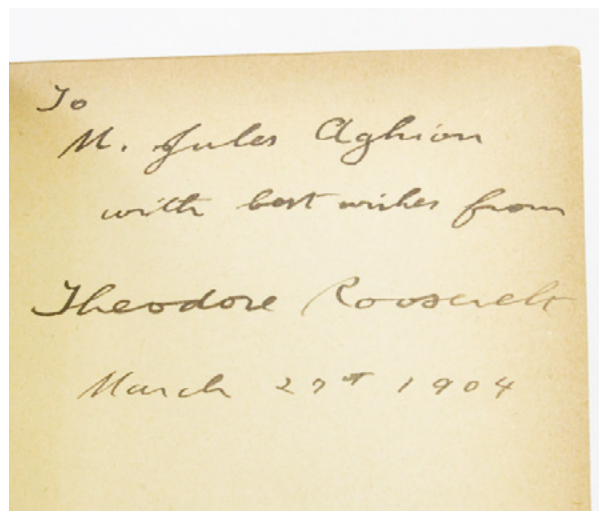 To
M. Jules Aghion
with best wishes from
Theodore Roosevelt
March 27th 1904